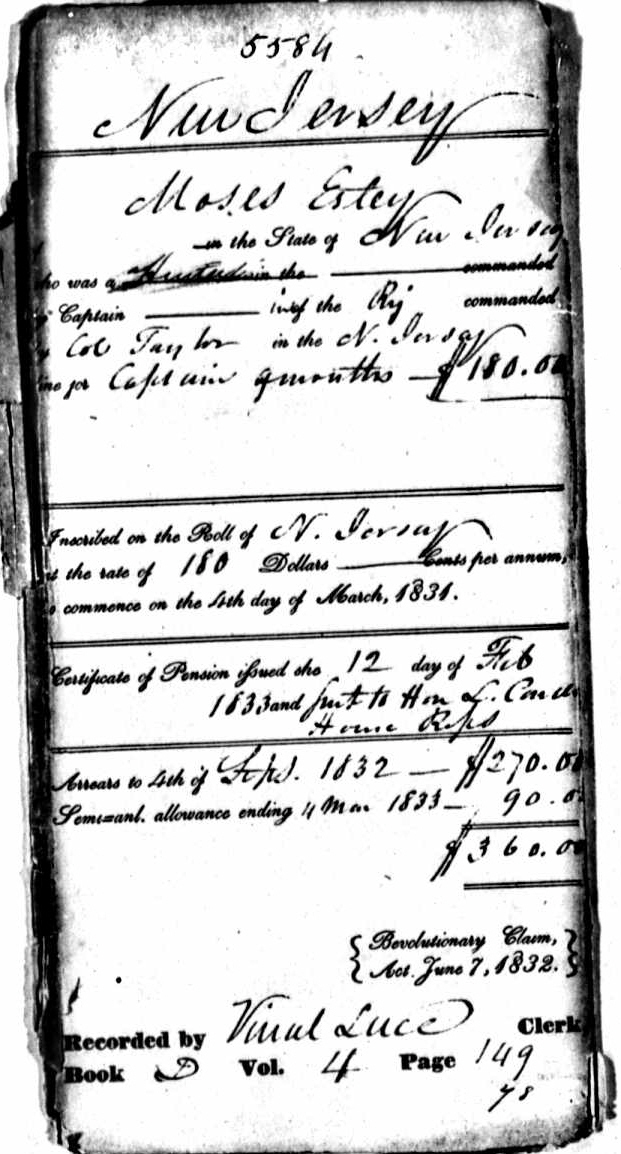 5584
New Jersey
Moses Estey
in the State of New Jersey
ho was a in the commanded
Captain of the Rg commanded
y Col Taylor in the N. Jersey
ine for Captain 9 months — $180.00
Inscribed on the Roll of N. Jersey
at the rate of 180 Dollars Cents per annum,
o commence on the 4th day of March, 1831.
Certificate of Pension issued the 12 day of Feb
1833 and sent to Hon L. Condi
House Reps
Arrears to 4th of Sept. 1832 — $270.00
Semi-anl. allowance ending 4 Mar 1833 — 90.0
$360.00
Revolutionary Claim,
Act June 7, 1832.
Recorded by Vinal Luce Clerk
Book D Vol. 4 Page 149
78